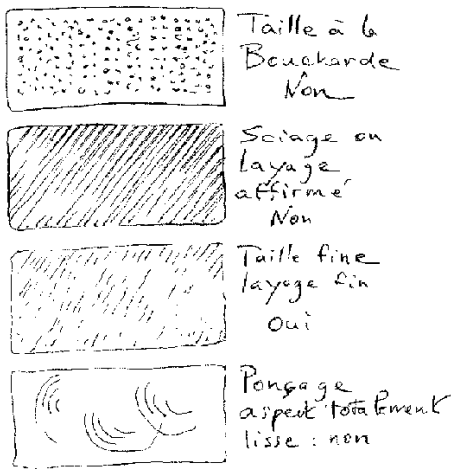 Taille à la
Boucharde
Non
Sciage ou
Layage
affirmé
Non
Taille fine
layage fin
oui
Ponçage
aspect totalement
lisse : non